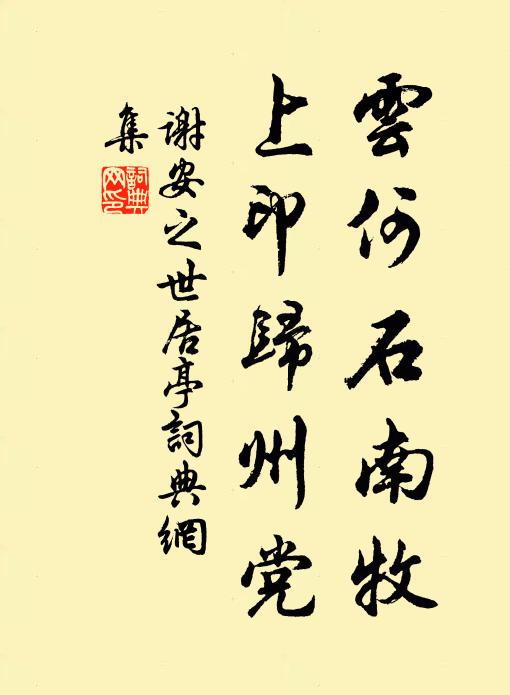 雲何石南牧
上印歸州党
謝安之世居亭詞典網
集
詞典
网印